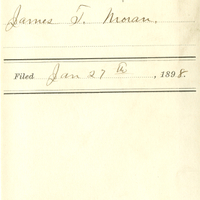 James T. Moran.
Filed Jan 27 th, 1898.